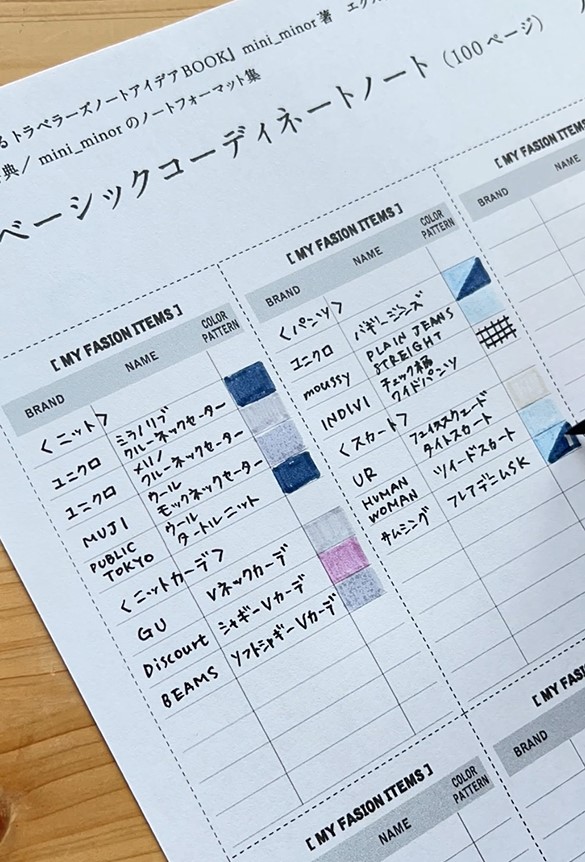 るトラベラーズノートアイデアBOOK』mini_minor 著
典／mini_minorのノートフォーマット集
ベーシックコーディネートノート（100ページ）
[ MY FASION ITEMS ]
BRAND NAME COLOR PATTERN
〈ニット〉
ユニクロ ミラノリブクルーネックセーター
ユニクロ メリノクルーネックセーター
MUJI ウールモックネックセーター
PUBLIC TOKYO ウールタートルニット
〈ニットカーデ〉
GU Vネックカーデ
Discourt シャギーVカーデ
BEAMS ソフトシャギーVカーデ
[ MY FASION ITEMS ]
BRAND NAME COLOR PATTERN
〈パンツ〉
ユニクロ バギージーンズ
moussy PLAIN JEANS STREIGHT
INDIVI チェック柄ワイドパンツ
〈スカート〉
UR フェイクスウェードタイトスカート
HUMAN WOMAN ツイードスカート
サムシング フレアデニムSK
[ MY FASION ITEMS
BRAND NAME
[ MY FASION ITEMS ]
NAME COLOR PATTERN
[ MY FASI
BRAND